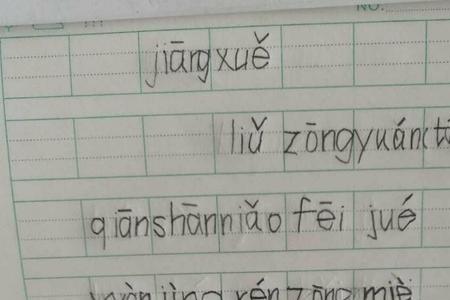 NO.
jiāngxuě
liǔ zōngyuán(t
qiānshānniǎo fēi jué
wàn jìng rén zōng miè